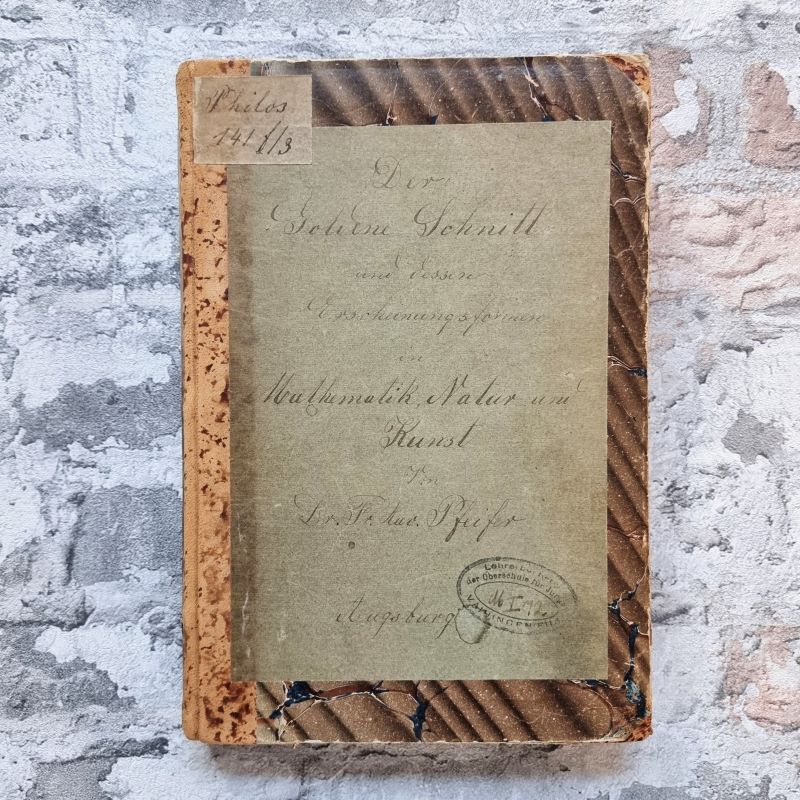 Philos
141 f/3
Der
Goldene Schnitt
und dessen
Erscheinungsformen
in
Mathematik, Natur und
Kunst
Von
Dr. Fr. Xav. Pfeifer
Augsburg
der Oberschule für
16 I
VAIHINGEN